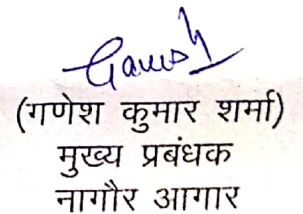 Ganesh
(गणेश कुमार शर्मा)
मुख्य प्रबंधक
नागौर आगार